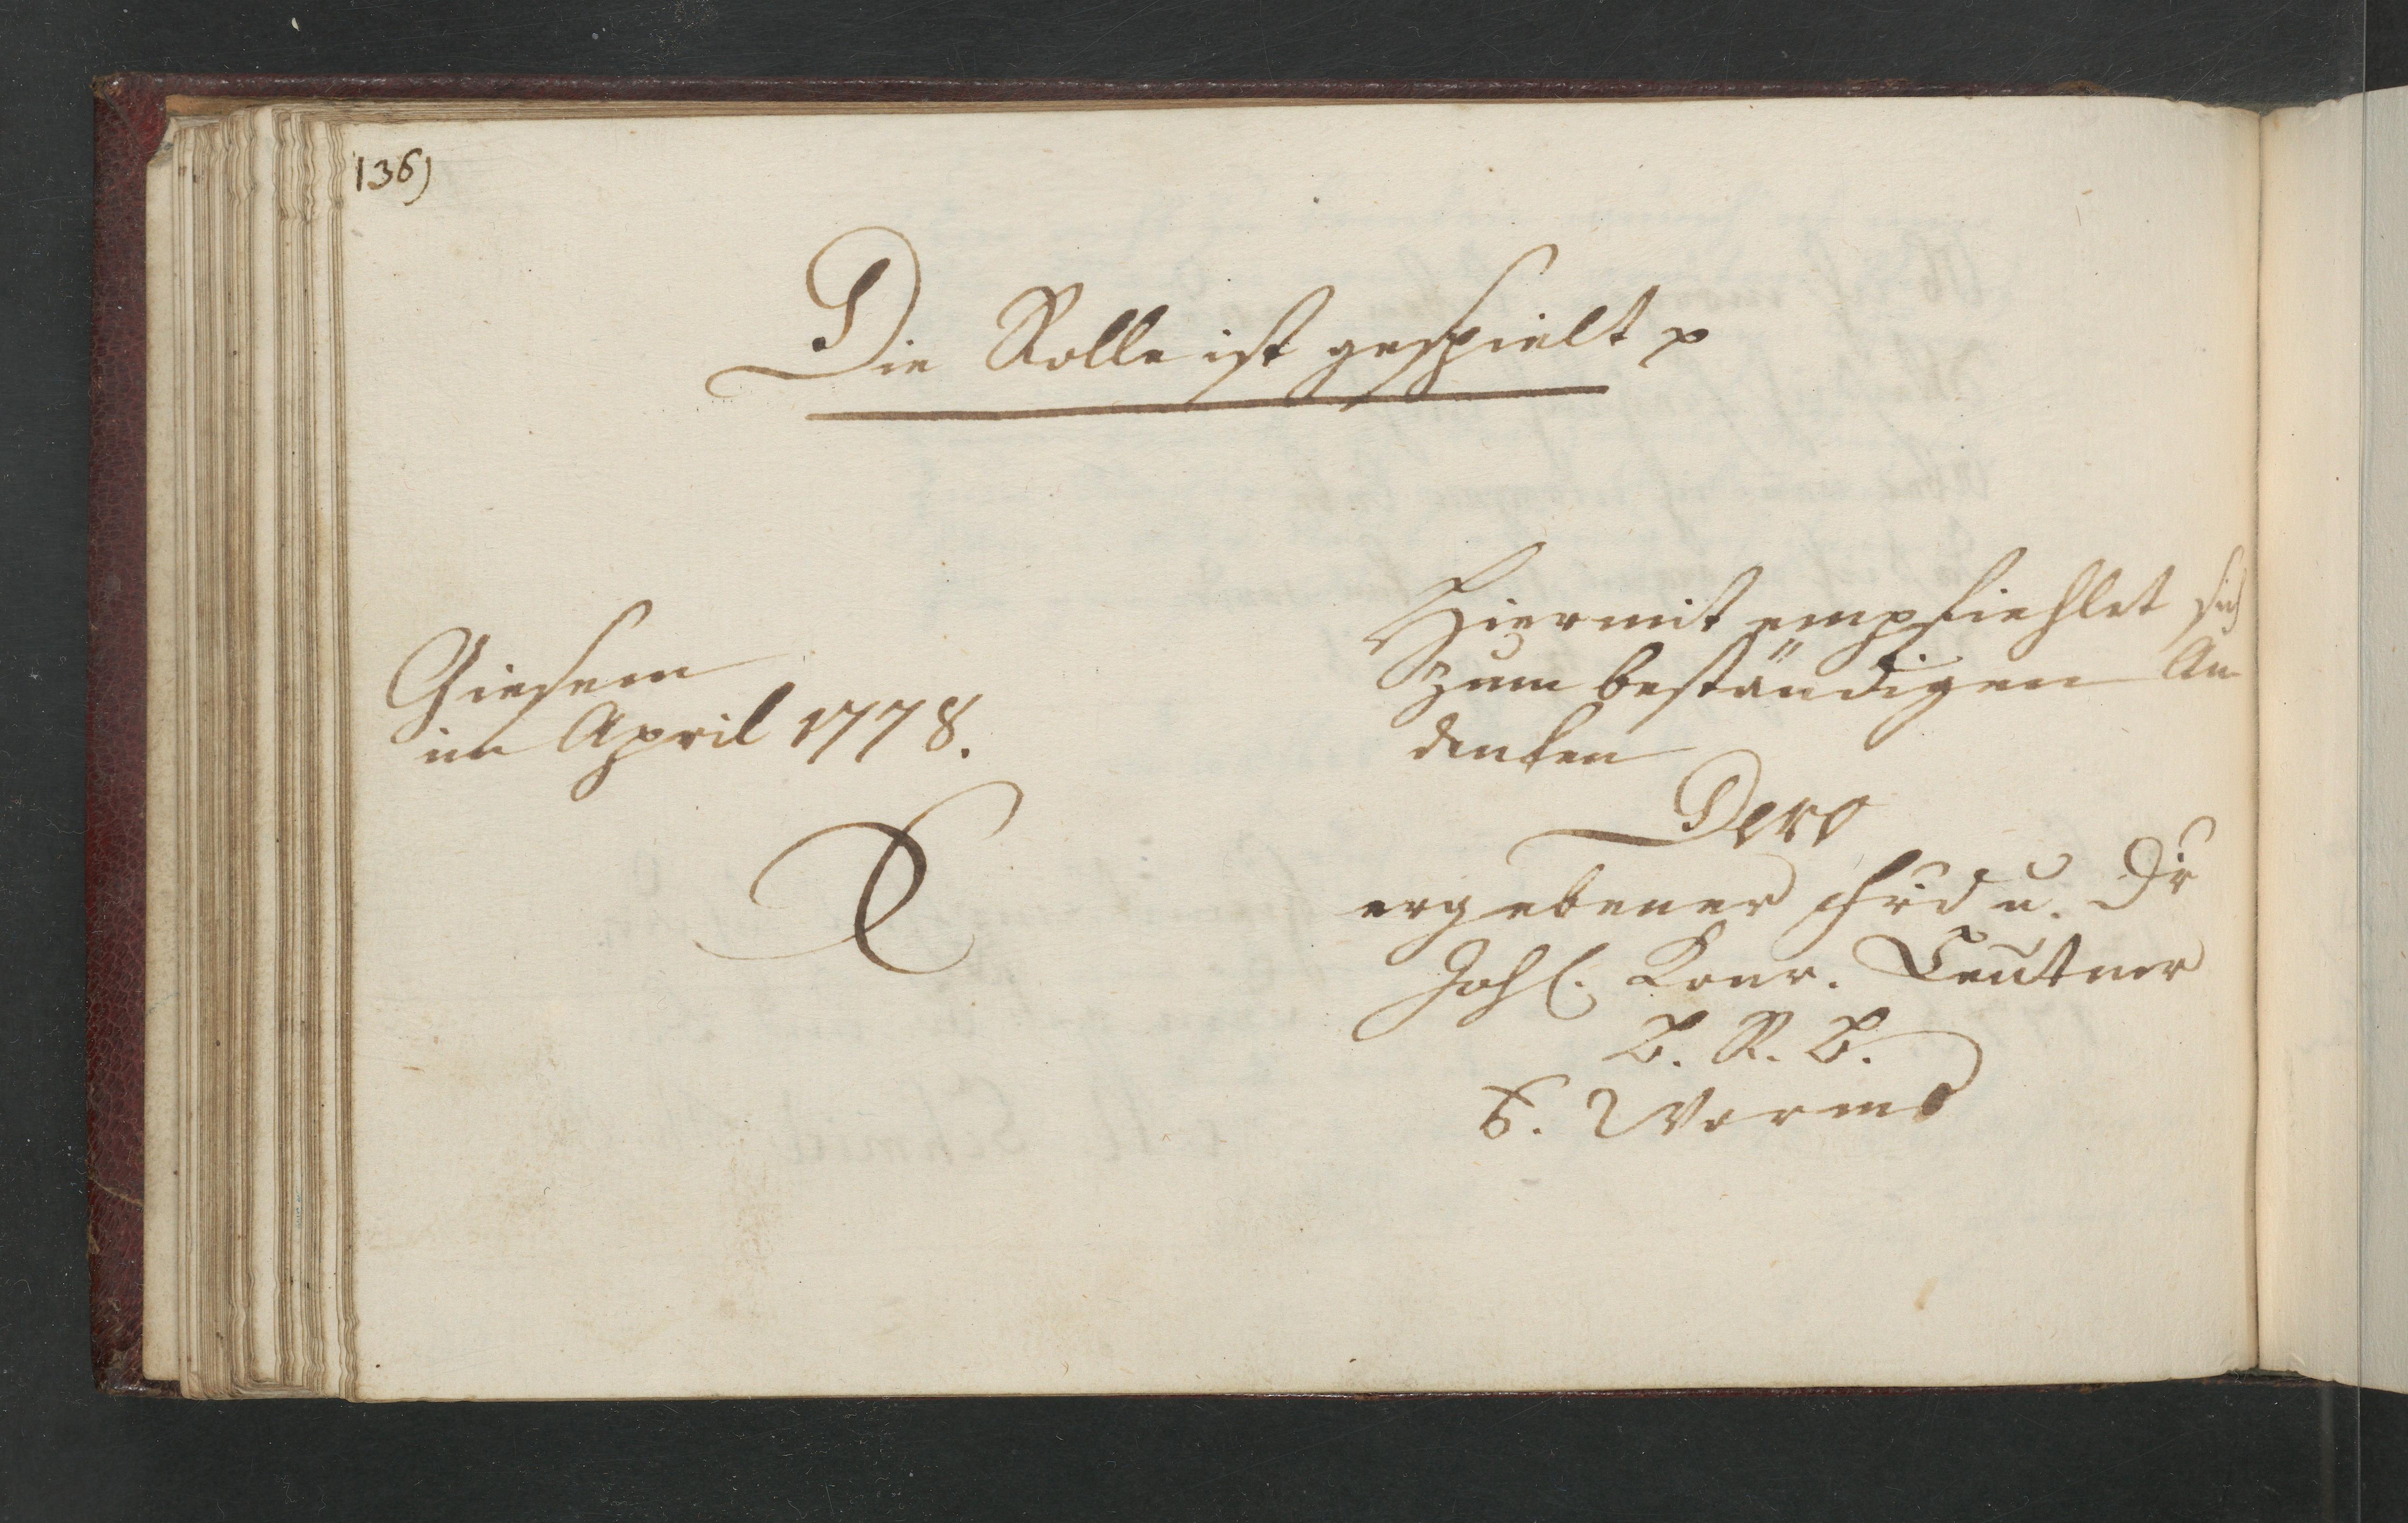 136)
Die Rolle ist gespielt
Giesen
im April 1778.
Hiermit empfiehlet sich
zum beständigen An
denken
Dero
ergebener Frd u. Dr
Joh. Konr. Leutner
B. R. B.
Worms